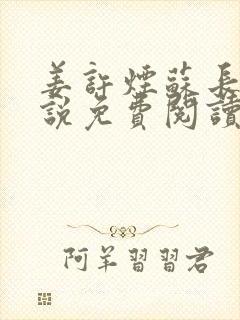 姜許煙蘇長
說免費閱讀
阿羊習習君